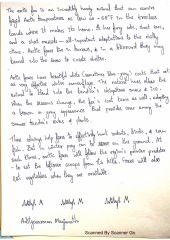 The arctic fox is an incredibly hardy animal that can survive
frigid Arctic temperatures as low as -58°F in the treeless
lands where it makes its home. It has furry soles, short ears,
and a short muzzle - all important adaptations to the chilly
clime. Arctic foxes live in burrows, and in a blizzard they may
tunnel into the snow to create shelter.
Arctic foxes have beautiful white (sometimes blue-gray) coats that act
as very effective winter camouflage. The natural hues allow the
animal to blend into the tundra's ubiquitous snow & ice.
When the seasons change, the fox's coat turns as well, adopting
a brown or gray appearance that provides cover among the
summer tundra's rocks & plants.
These colorings help foxes to effectively hunt rodents, birds, & even
fish. But in winter prey can be scarce on the ground. At
such times, arctic foxes will follow the region's premier predator
to eat the leftover scraps from its kills. Foxes will also
eat vegetables when they are available.
Scanned By Scanner Go